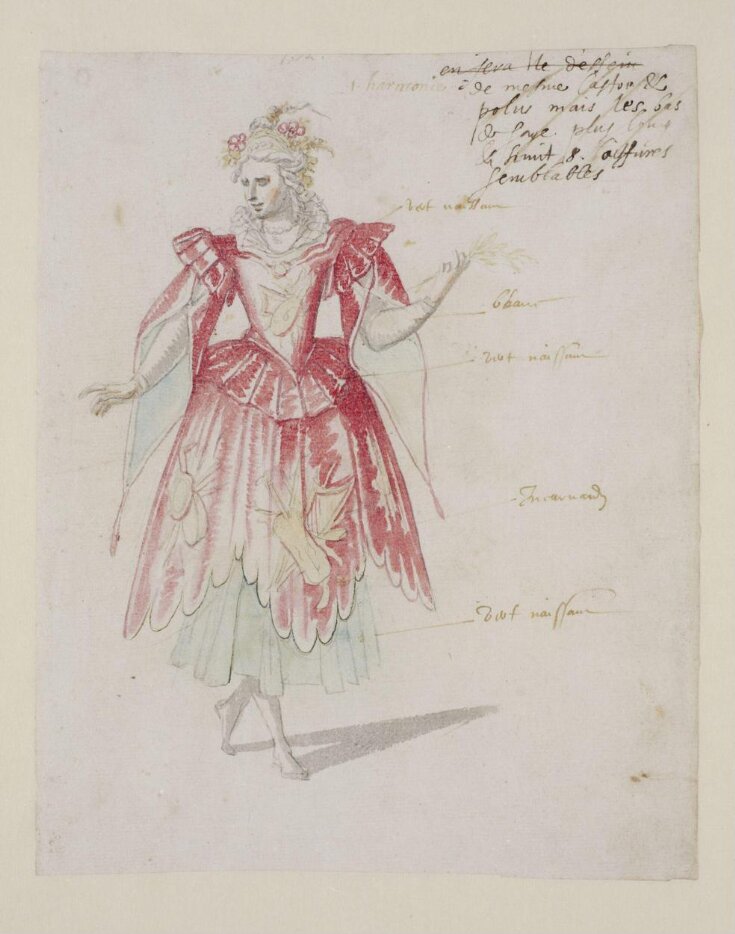 en sera le dessein
1 harmonie
de mesme Castor &
polus mais les bas
de soye plus
8. coiffures
semblables
vert naissant
blanc
vert naissant
Incarnard
vert naissant